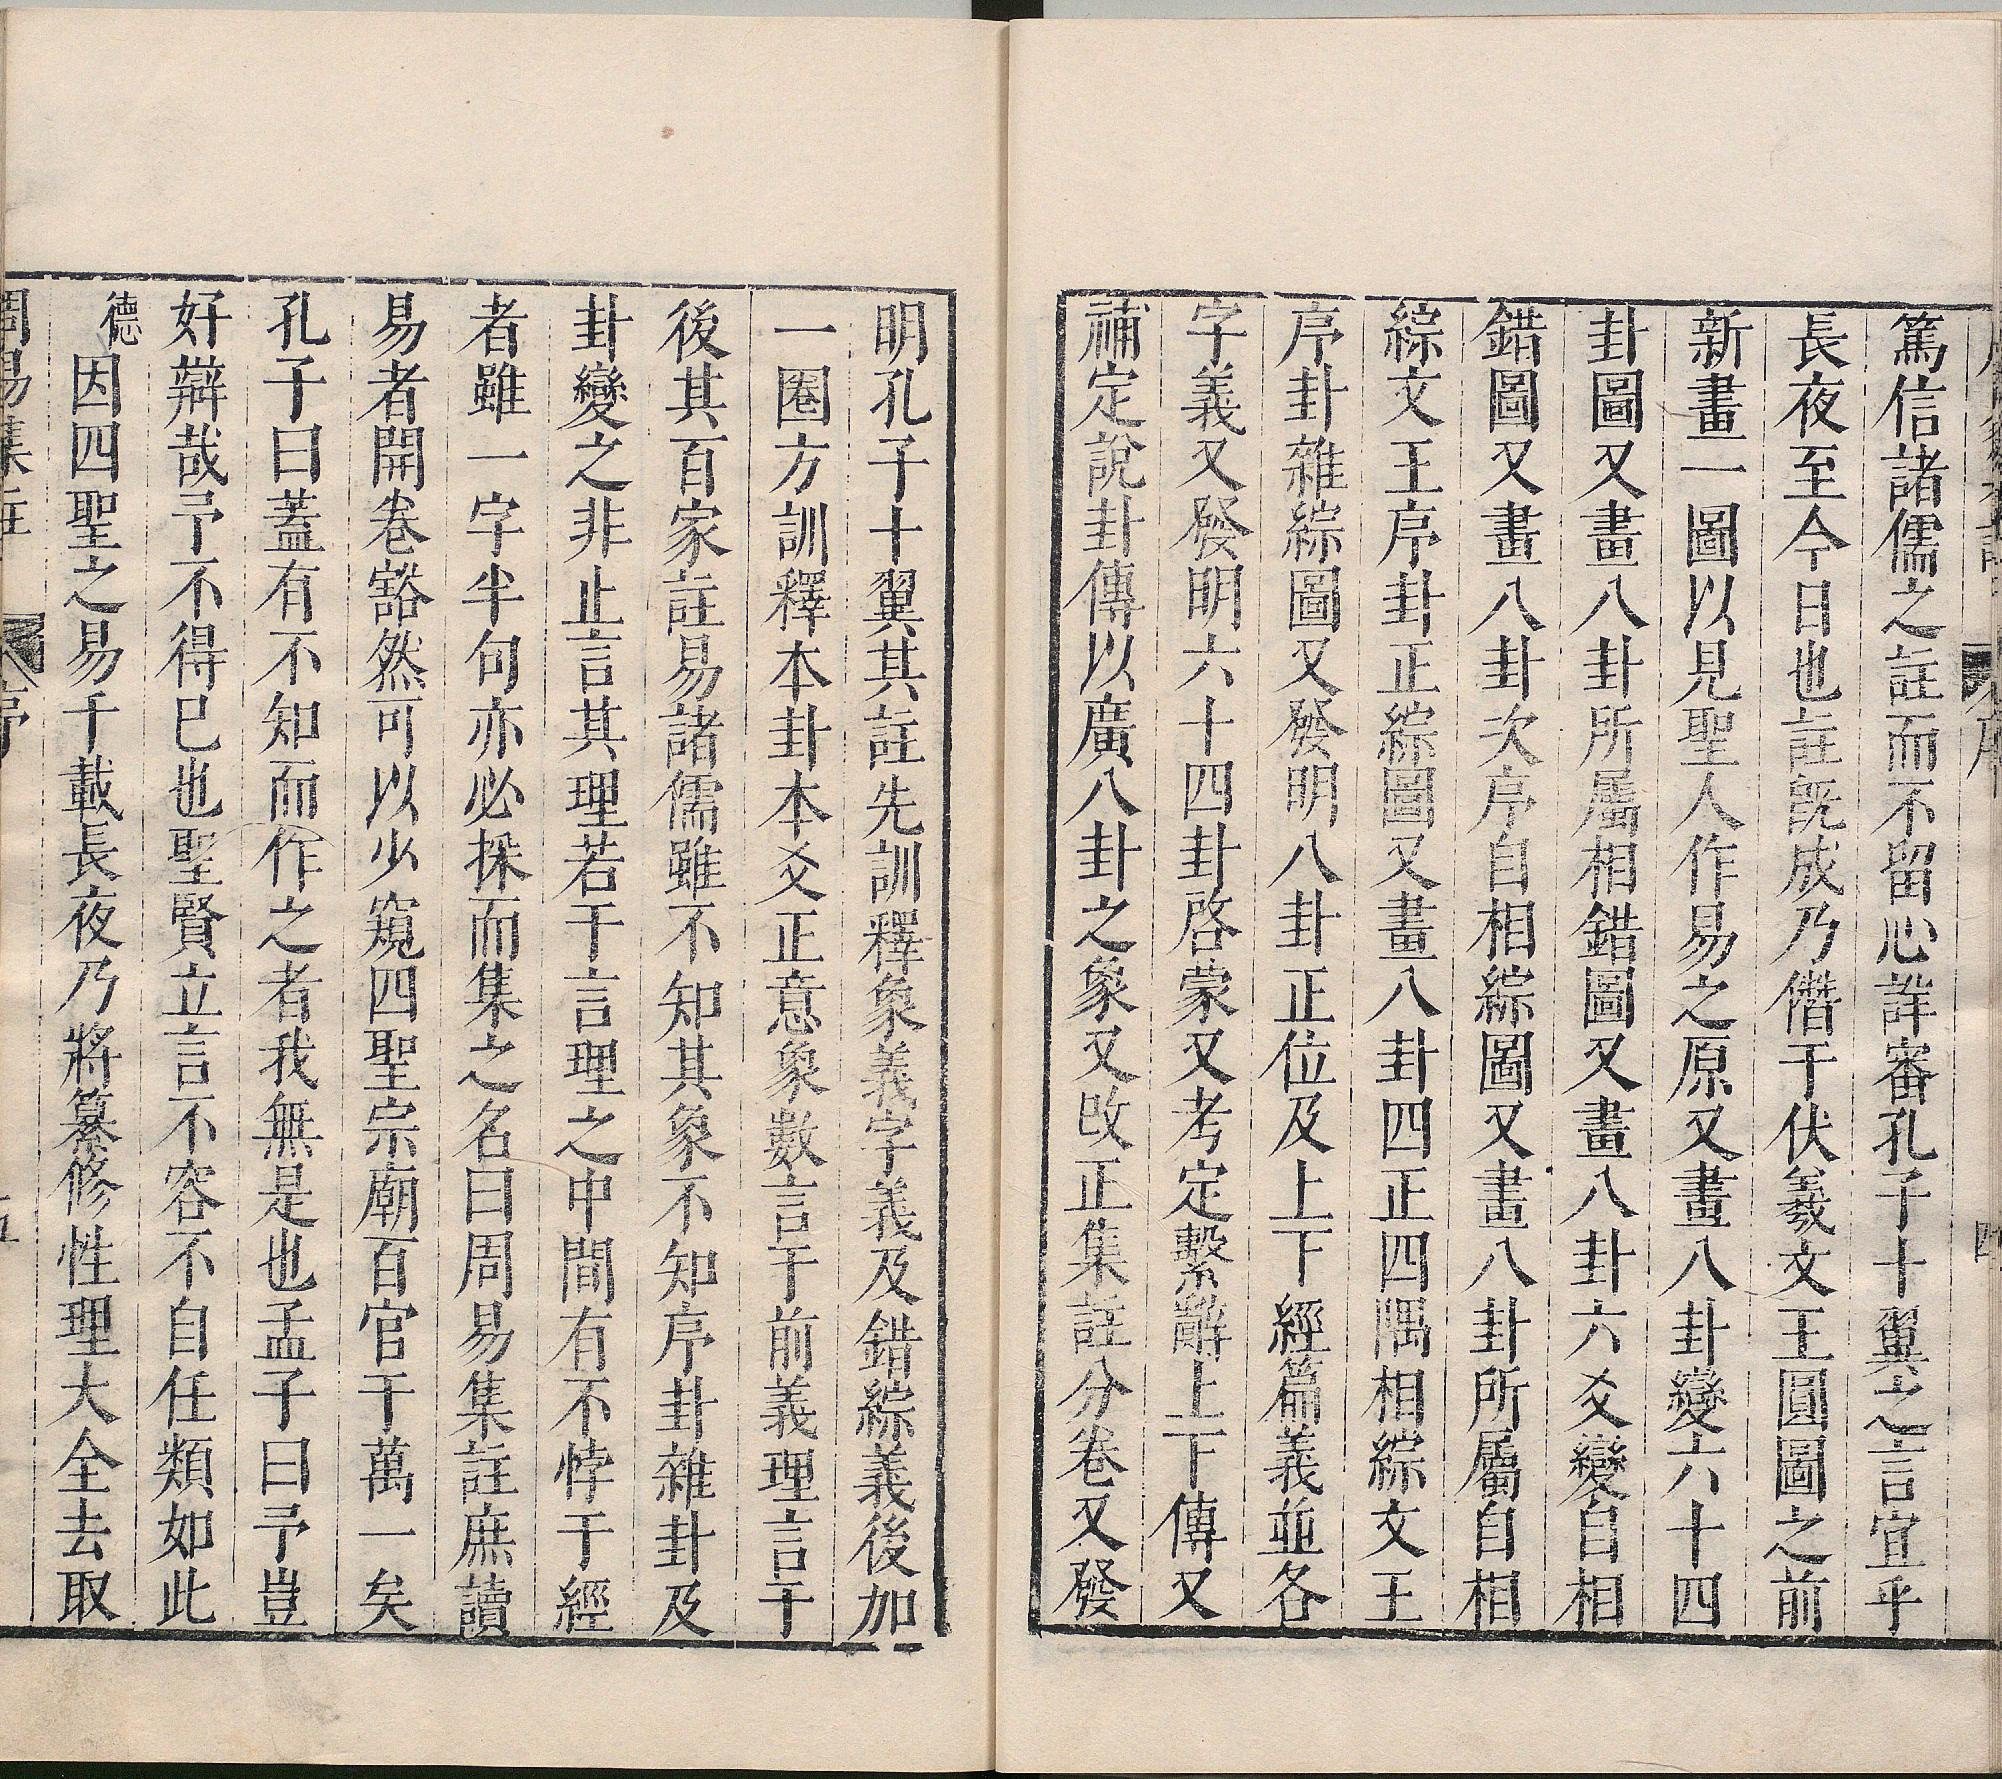 篤信諸儒之註而不留心詳審孔子十翼之言宜乎
長夜至今日也註旣成乃僭于伏羲文王圓圖之前
新畫一圖以見聖人作易之原又畫八卦變六十四
卦圖又畫八卦所屬相錯圖又畫八卦六爻變自相
錯圖又畫八卦次序自相綜圖又畫八卦所屬自相
綜文王序卦正綜圖又畫八卦四正四隅相綜文王
序卦雜綜圖又發明八卦正位及上下經篇義並各
字義又發明六十四卦啓蒙又考定繫辭上下傳又
補定說卦傳以廣八卦之象又改正集註分卷又發
明孔子十翼其註先訓釋象義字義及錯綜義後加
一圈方訓釋本卦本爻正意象數言于前義理言于
後其百家註易諸儒雖不知其象不知序卦雜卦及
卦變之非止言其理若于言理之中間有不悖于經
者雖一字半句亦必採而集之名曰周易集註庶讀
易者開卷豁然可以少窺四聖宗廟百官于萬一矣
孔子曰蓋有不知而作之者我無是也孟子曰予豈
好辯哉予不得已也聖賢立言不容不自任類如此
德因四聖之易千載長夜乃將纂修性理大全去取
周易集註 序 五